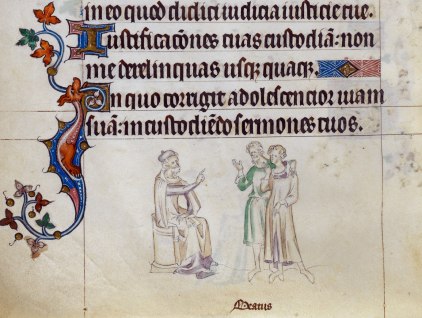 in eo quod didici iudicia iusticie tue.
Iustificacõnes tuas custodiã: non
me derelinquas usq; quaq;.
In quo corrigit adolescencior uiam
suã: in custodiẽdo sermones tuos.